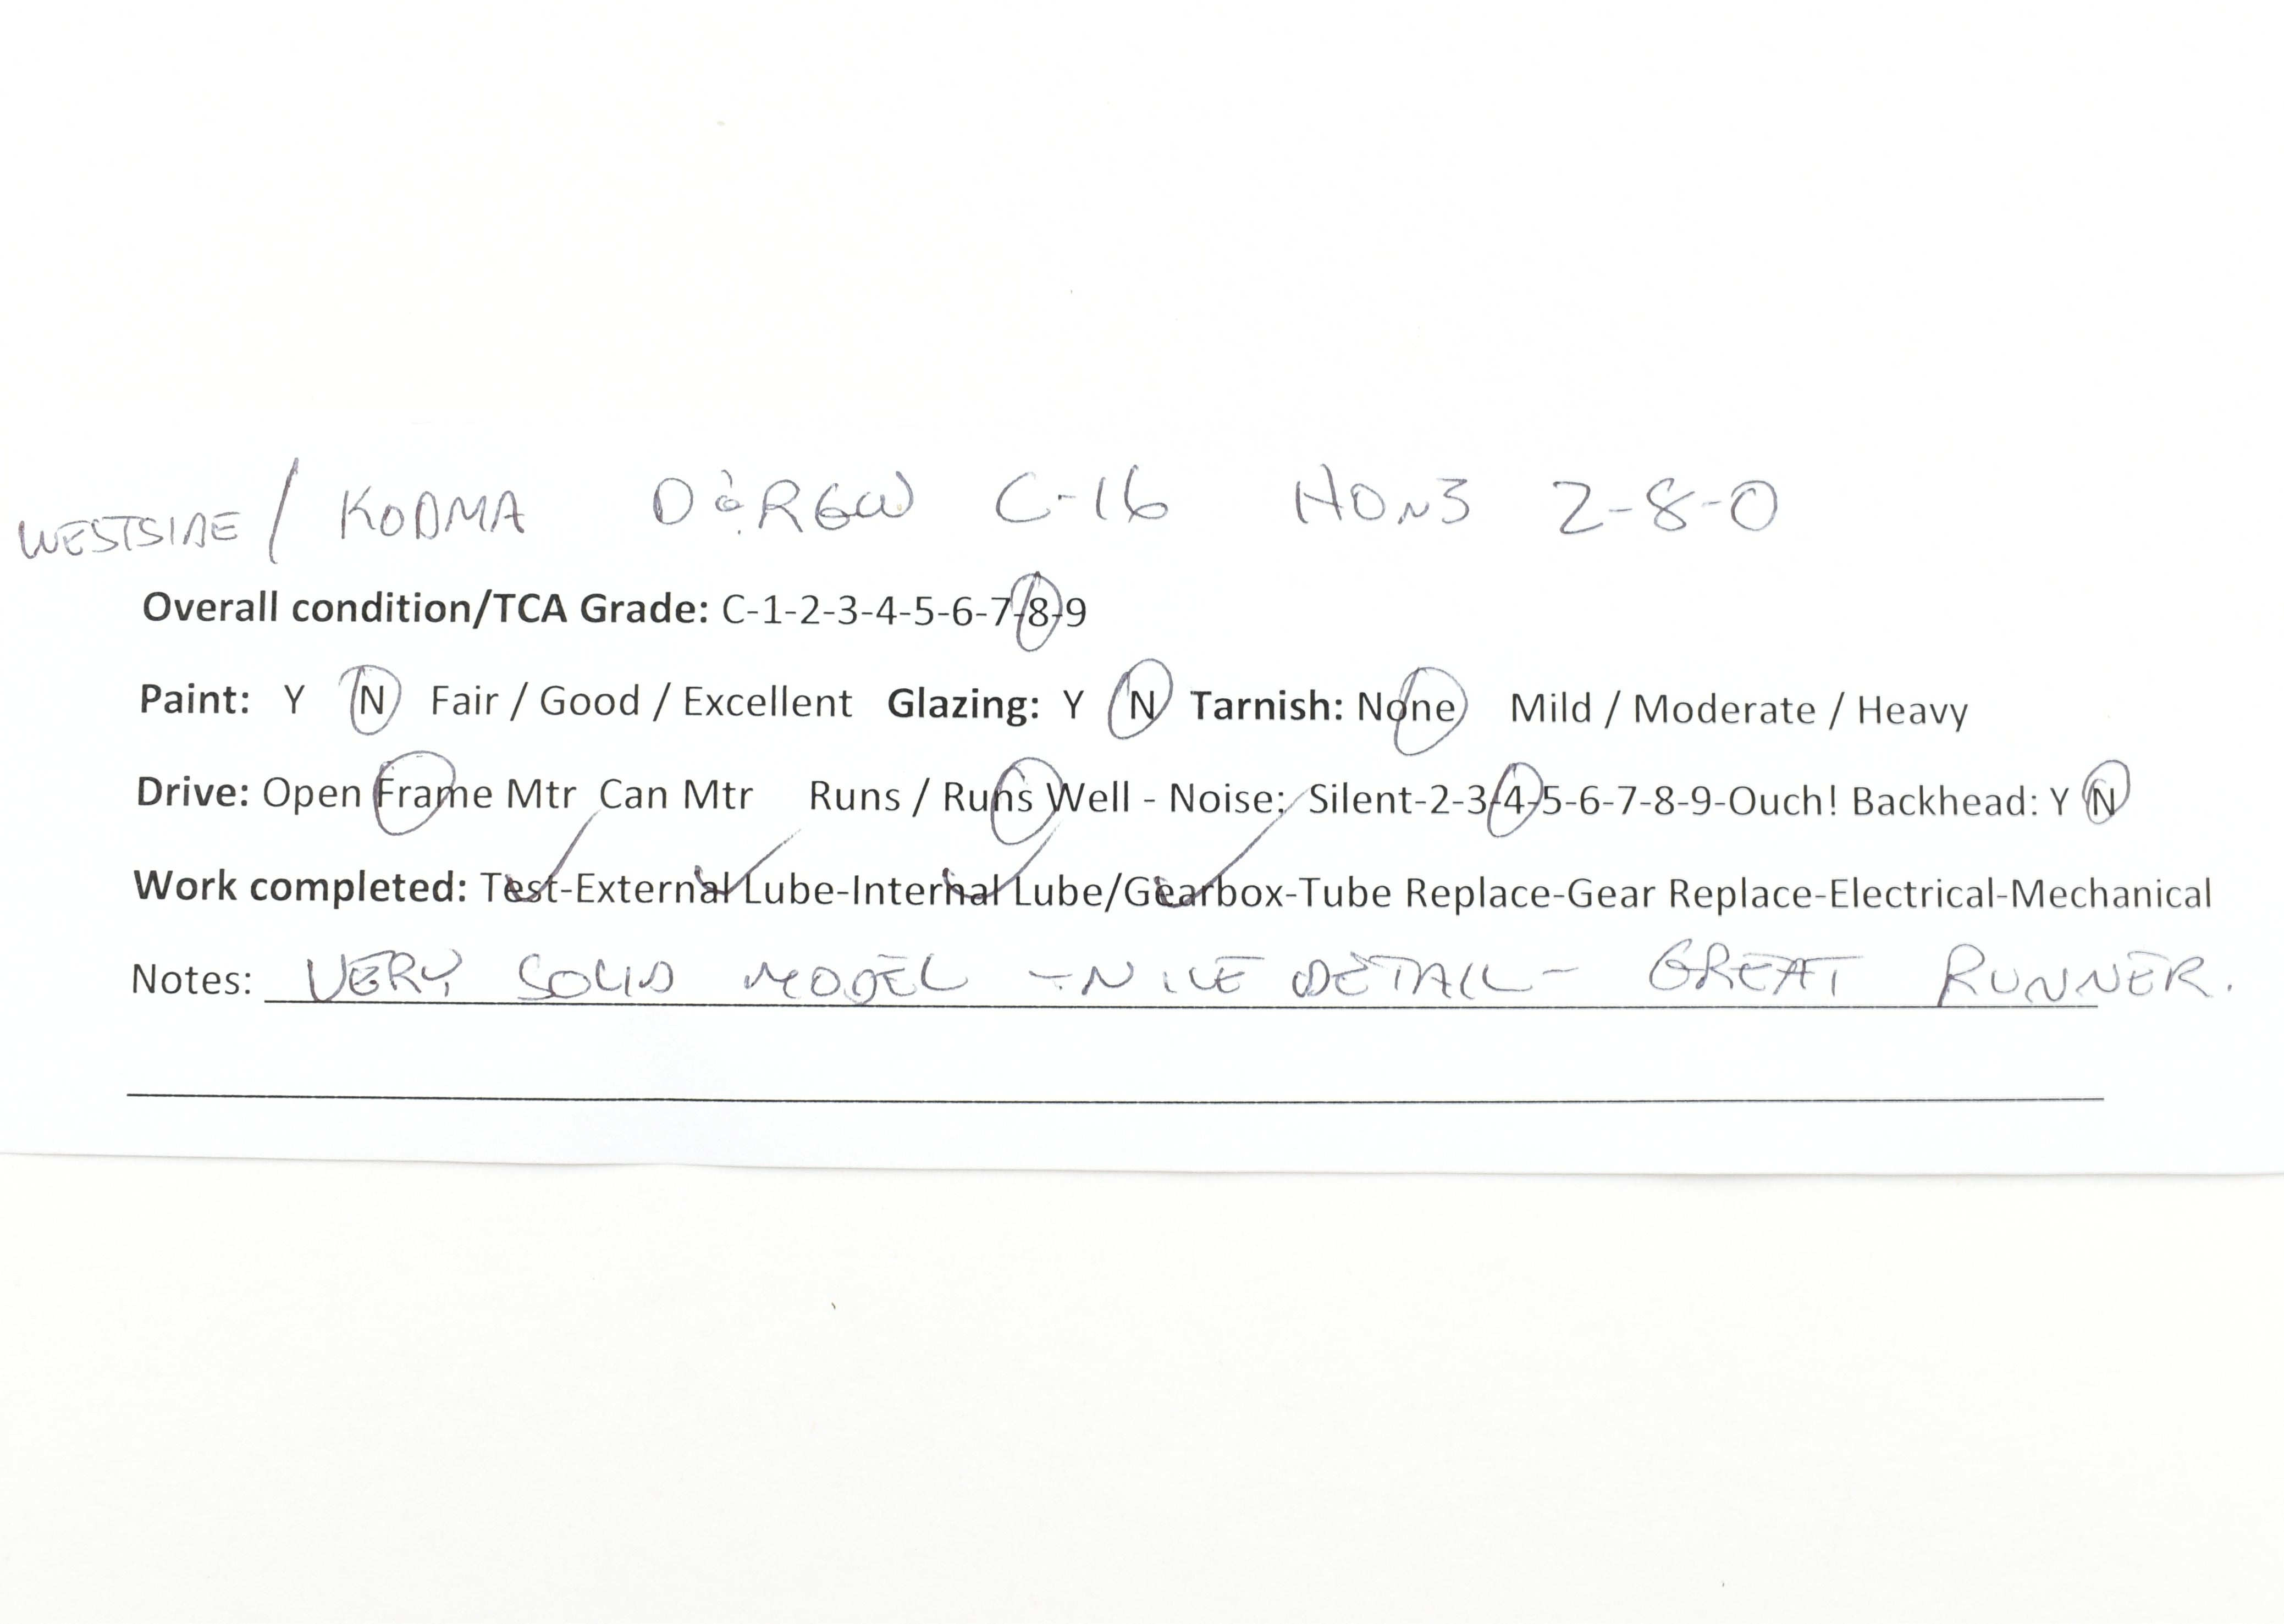 WESTSIDE / KODMA D&RGW C-16 HOn3 2-8-0
Overall condition/TCA Grade: C-1-2-3-4-5-6-7-8-9
Paint: Y N Fair / Good / Excellent Glazing: Y N Tarnish: None Mild / Moderate / Heavy
Drive: Open Frame Mtr Can Mtr Runs / Runs Well - Noise: Silent-2-3-4-5-6-7-8-9-Ouch! Backhead: Y N
Work completed: Test-External Lube-Internal Lube/Gearbox-Tube Replace-Gear Replace-Electrical-Mechanical
Notes: VERY SOLID MODEL - NICE DETAIL - GREAT RUNNER.